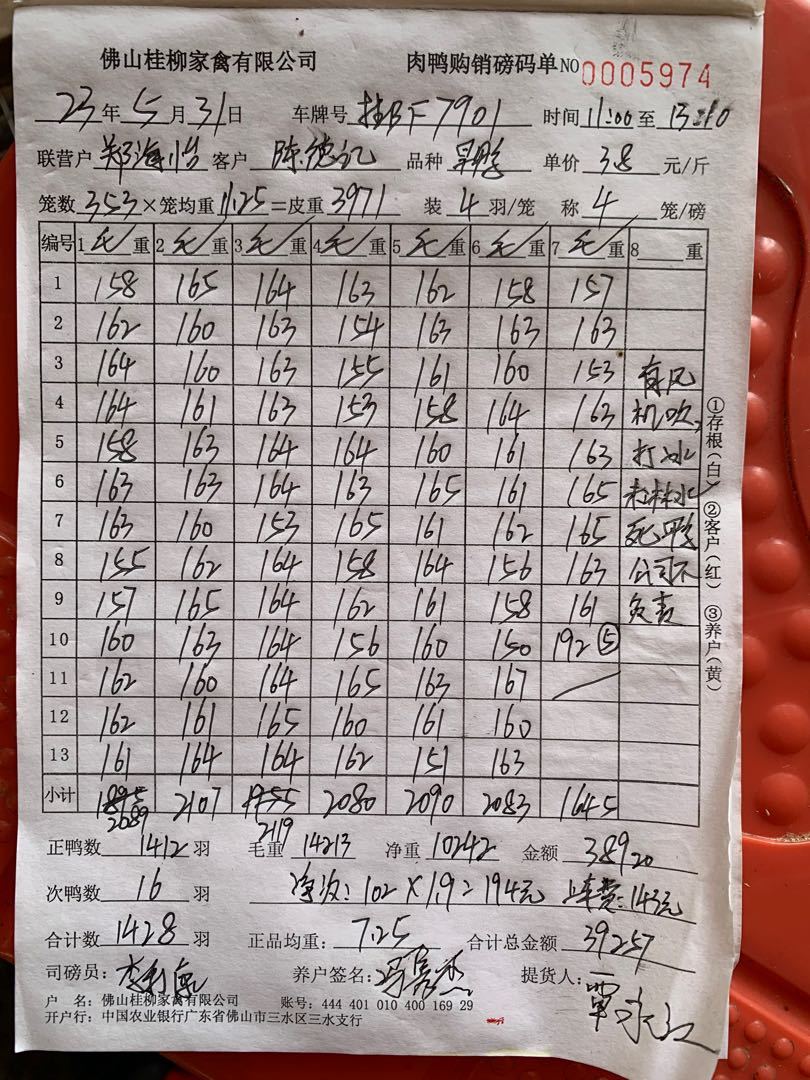 佛山桂柳家禽有限公司 肉鸭购销磅码单 NO 0005974
23年5月31日 车牌号 桂BF7901 时间 11:00至13:10
联营户 郑海浩 客户 陈德记 品种 单价 3.8 元/斤
笼数 353 ×笼均重 11.25 =皮重 3971 装 4 羽/笼 称 4 笼/磅
编号 1 毛 重 2 毛 重 3 毛 重 4 毛 重 5 毛 重 6 毛 重 7 毛 重 8 重
1 158 165 164 163 162 158 157
2 162 160 163 154 163 163 163
3 164 160 163 155 161 160 153 有风
4 164 161 163 153 158 164 163 机吹,
5 158 163 164 164 160 161 163 打水
6 163 163 164 163 165 161 165
7 163 160 153 165 161 162 165 死鸭
8 155 162 164 158 164 156 163 公司不
9 157 165 164 162 161 158 161 负责
10 160 163 164 156 160 150 192 ⑤
11 162 160 164 165 163 167
12 162 161 165 160 161 160
13 161 164 164 162 151 163
小计 2089 2107 2119 2080 2090 2083 1645
正鸭数 1412 羽 毛重 14213 净重 10242 金额 38920
次鸭数 16 羽 净次: 102×1.9=194元 上车费:143元
合计数 1428 羽 正品均重: 7.25 合计总金额 39257
司磅员: 养户签名: 提货人: 覃永江
户 名: 佛山桂柳家禽有限公司 账号: 444 401 010 400 169 29
开户行: 中国农业银行广东省佛山市三水区三水支行
①存根(白) ②客户(红) ③养户(黄)